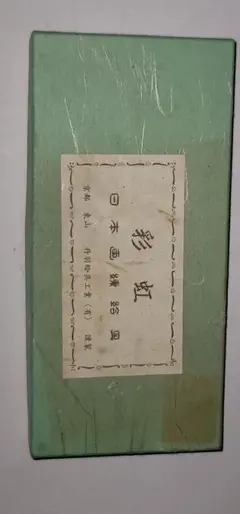 彩虹
日本画錬絵具
京都 東山 丹羽絵具工業(有)謹製